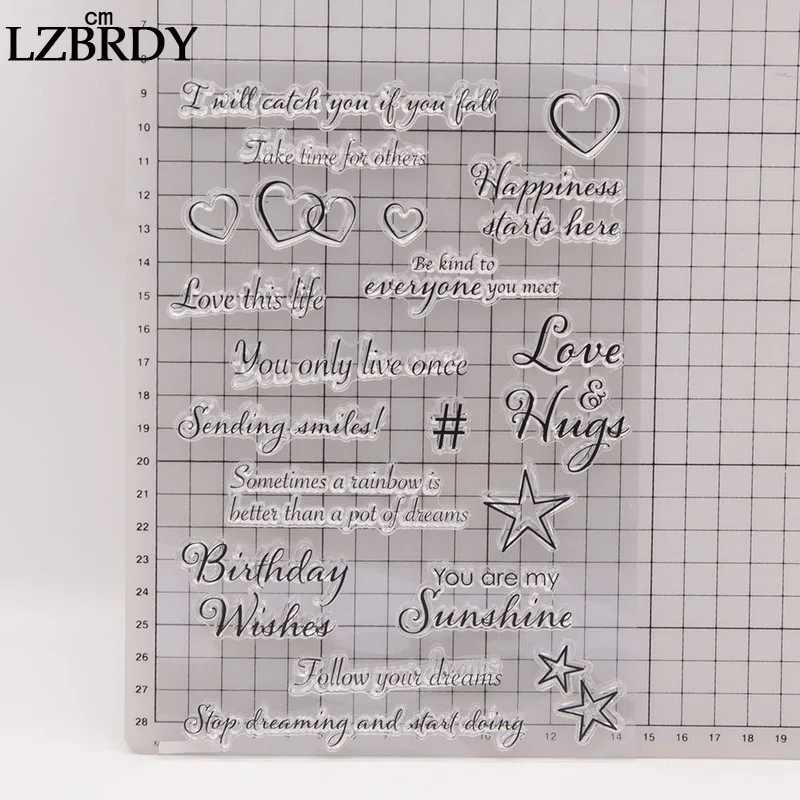 cm
LZBRDY
I will catch you if you fall
Take time for others
Happiness
starts here
Be kind to
everyone you meet
Love this life
You only live once
Love
&
Hugs
Sending smiles!
#
Sometimes a rainbow is
better than a pot of dreams
Birthday
Wishes
You are my
Sunshine
Follow your dreams
Stop dreaming and start doing
8
9
10
11
12
13
14
15
16
17
18
19
20
21
22
23
24
25
26
27
28
10
12
14
15
16
17
18
19